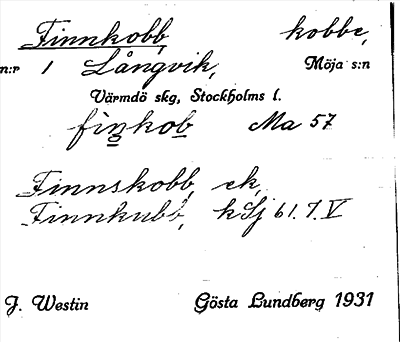 Finnkobb, kobbe,
n:r 1 Långvik, Möja s:n
Värmdö skg, Stockholms l.
finkob Ma 57
Finnskobb, ek,
Finnkubb, kSj 61.7.V
J. Westin Gösta Lundberg 1931